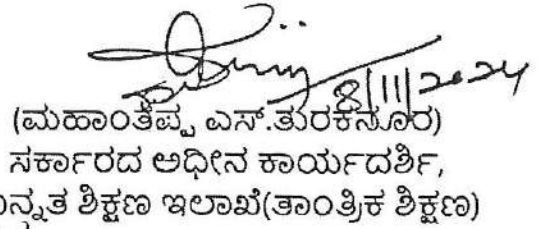 8/11/2024
(ಮಹಾಂತಪ್ಪ ಎಸ್.ತುರಕನೂರ)
ಸರ್ಕಾರದ ಅಧೀನ ಕಾರ್ಯದರ್ಶಿ,
ನ್ನತ ಶಿಕ್ಷಣ ಇಲಾಖೆ(ತಾಂತ್ರಿಕ ಶಿಕ್ಷಣ)